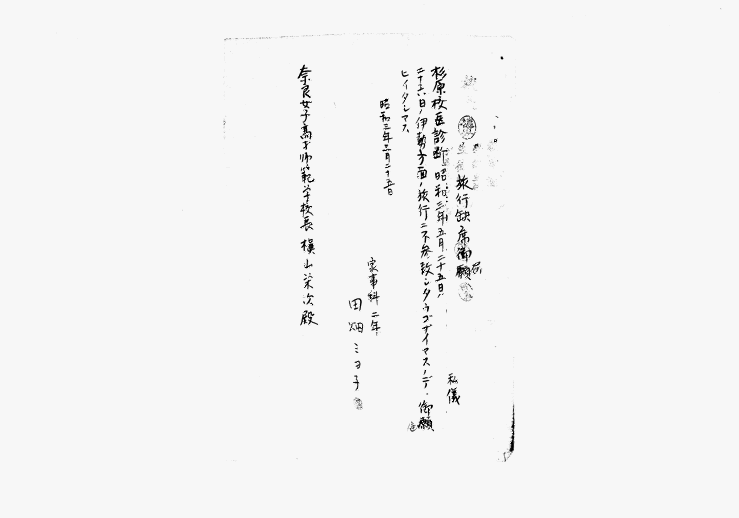 旅行缺席御願
届
私儀
杉原校医診断 昭和三年五月二十五日、
二十六日、伊勢方面ノ旅行ニ不参致シタウゴザイマスノデ、御願
ヒイタシマス
昭和三年五月二十五日
家事科二年
田畑ミヨ子
奈良女子高才師範学校長 横山栄次殿